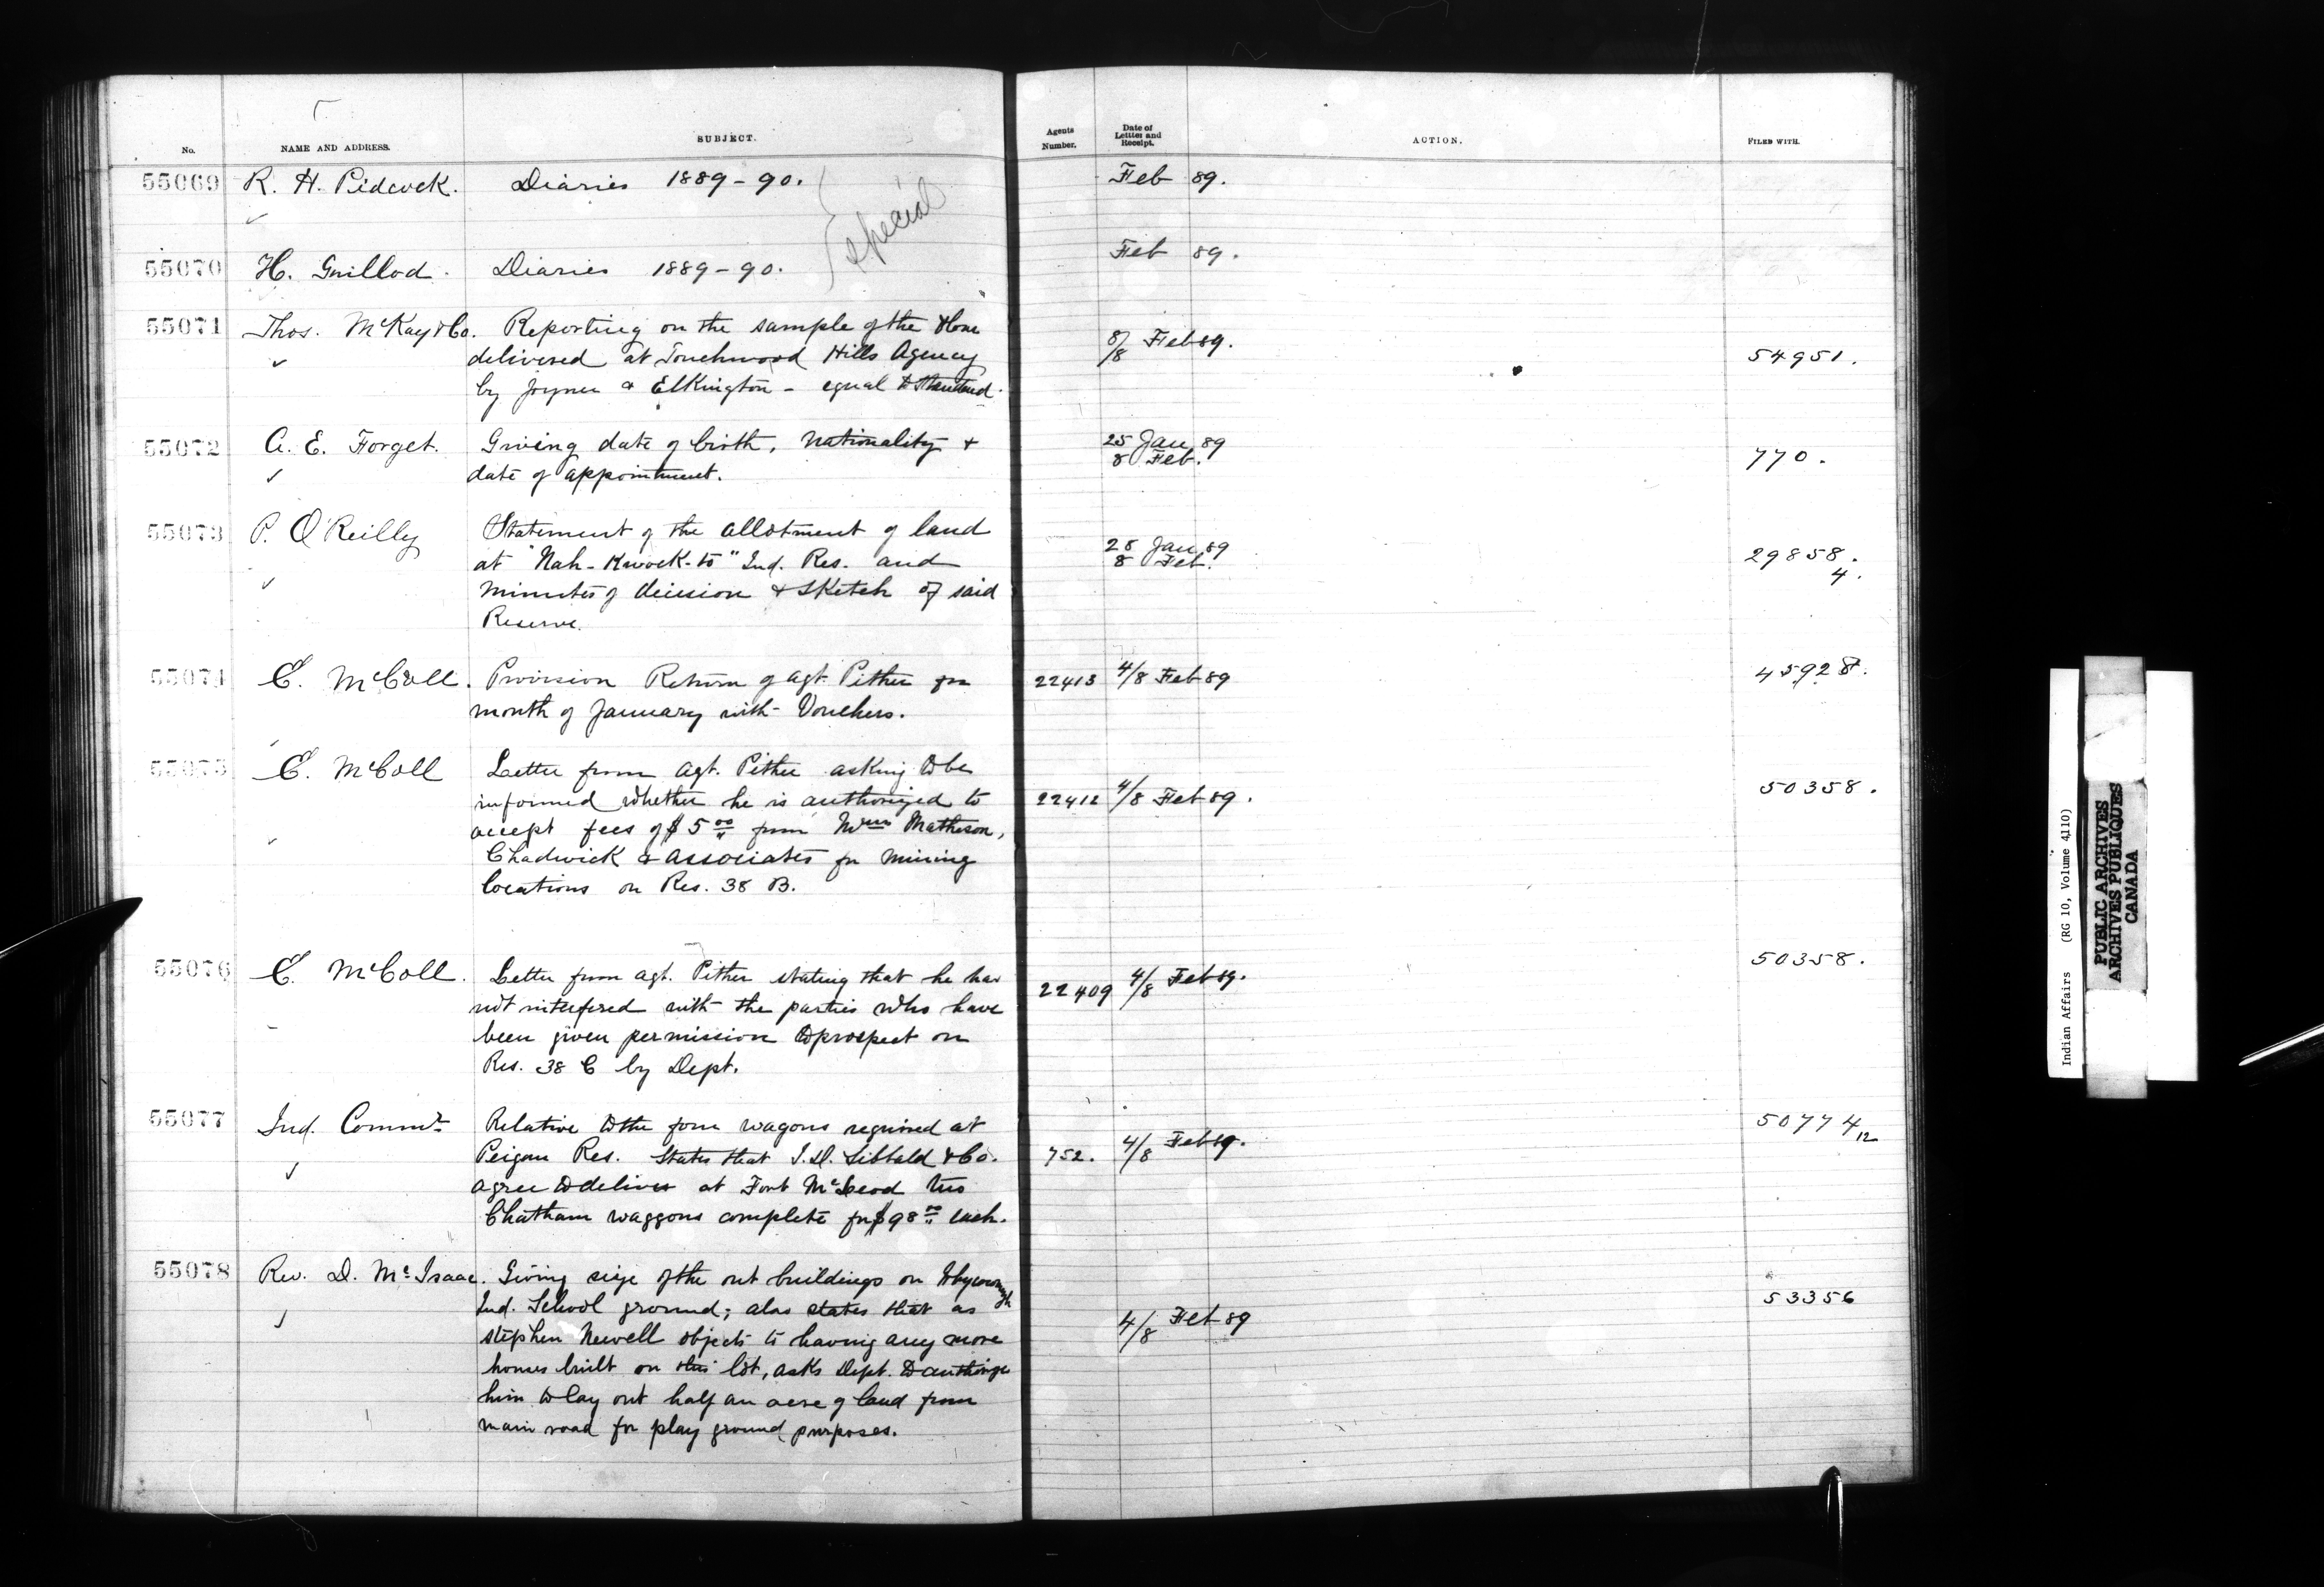 No.
NAME AND ADDRESS.
SUBJECT.
Agents Number.
Date of Letter and Receipt.
ACTION.
FILED WITH.
55069 R. H. Pidcock. Diaries 1889-90. Feb 89.
special
55070 H. Guillod. Diaries 1889-90. Feb 89.
55071 Thos. McKay & Co. Reporting on the sample of the flour
delivered at Touchwood Hills Agency 8/8 Feb 89. 54951.
by Joyner & Elkington - equal to standard.
55072 A. E. Forget. Giving date of birth, nationality + 25 Jan 89
date of appointment. 8 Feb. 770.
55073 P. O'Reilly Statement of the allotment of land
at "Nah-Kwock-to" Ind. Res. and 28 Jan 89 29858.
minutes of decision & sketch of said 8 Feb. 4.
Reserve.
55074 E. McColl. Provision Return of Agt. Pither for 22413 4/8 Feb 89 45928.
month of January with Vouchers.
55075 E. McColl Letter from Agt. Pither asking to be
informed whether he is authorized to 22412 4/8 Feb 89. 50358.
accept fees of $5 00 from Matheson,
Chadwick & associates for mining
locations on Res. 38 B.
55076 E. McColl. Letter from Agt. Pither stating that he has 50358.
not interfered with the parties who have 22409 4/8 Feb 89.
been given permission to prospect on
Res. 38 C by Dept.
55077 Ind. Commr Relative to the four wagons required at 50774 12
Peigan Res. States that I. D. Sibbald & Co. 752. 4/8 Feb 89.
agree to deliver at Fort McLeod two
Chatham waggons complete for $98 00 each.
55078 Rev. D. McIsaac. Giving size of the out buildings on Whycocomagh
Ind. School ground; also states that as 53356
Stephen Newell objects to having any more 4/8 Feb 89
houses built on this lot, asks Dept. to authorize
him to lay out half an acre of land from
main road for play ground purposes.
Indian Affairs (RG 10, Volume 4110)
PUBLIC ARCHIVES
ARCHIVES PUBLIQUES
CANADA